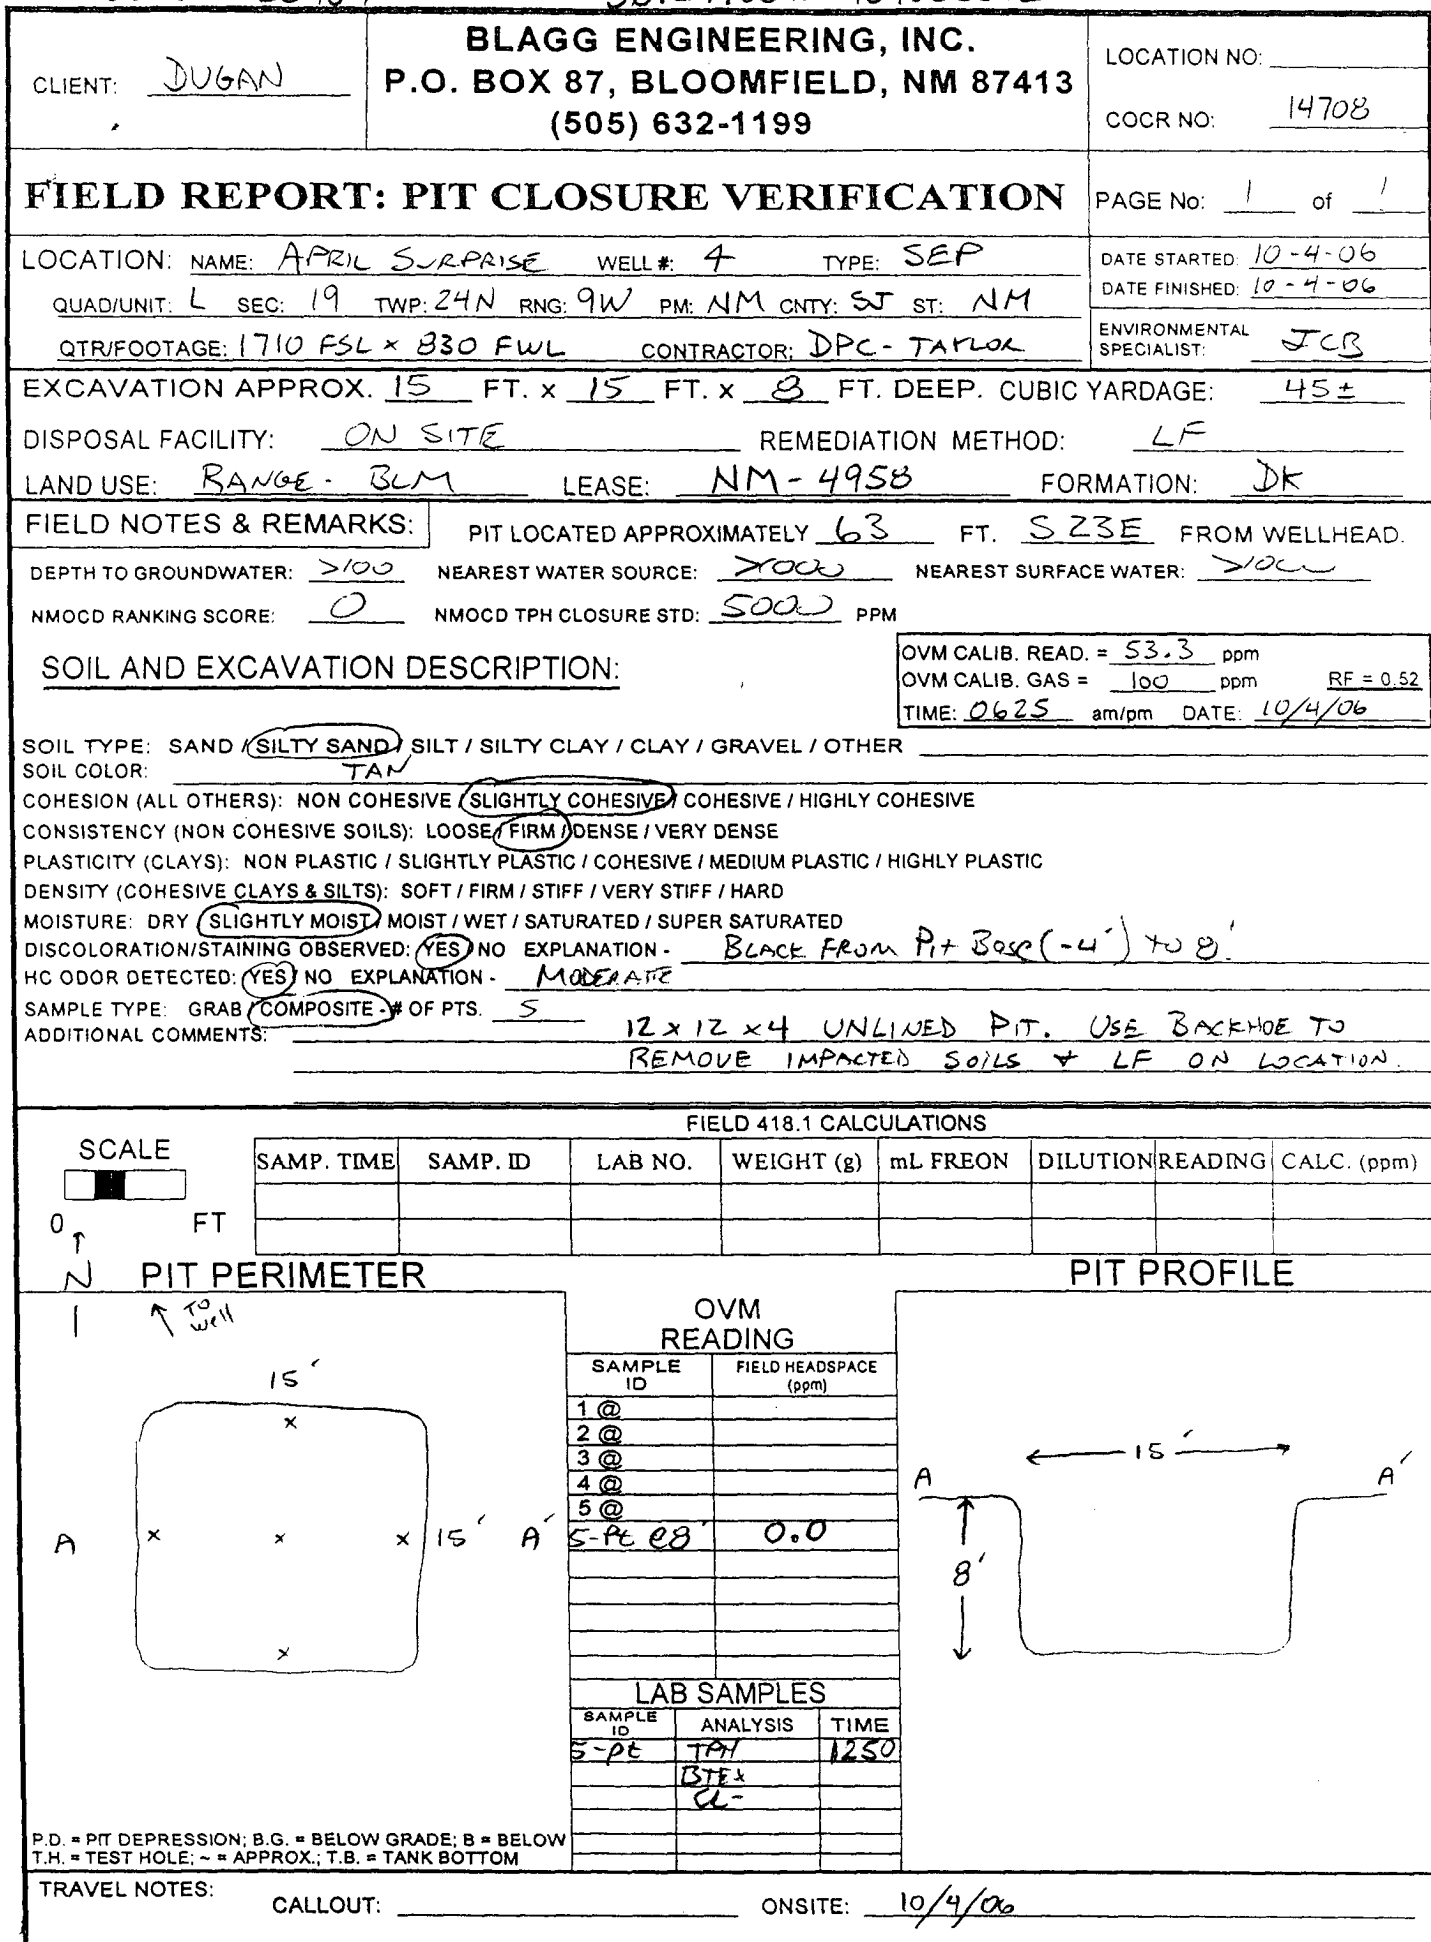 BLAGG ENGINEERING, INC.
P.O. BOX 87, BLOOMFIELD, NM 87413
(505) 632-1199
CLIENT: DUGAN
LOCATION NO:
COCR NO: 14708
FIELD REPORT: PIT CLOSURE VERIFICATION
PAGE No: 1 of 1
LOCATION: NAME: APRIL SURPRISE WELL #: 4 TYPE: SEP
DATE STARTED: 10-4-06
DATE FINISHED: 10-4-06
QUAD/UNIT: L SEC: 19 TWP: 24N RNG: 9W PM: NM CNTY: SJ ST: NM
QTR/FOOTAGE: 1710 FSL x 830 FWL CONTRACTOR: DPC - TAYLOR
ENVIRONMENTAL
SPECIALIST: JCB
EXCAVATION APPROX. 15 FT. x 15 FT. x 8 FT. DEEP. CUBIC YARDAGE: 45±
DISPOSAL FACILITY: ON SITE REMEDIATION METHOD: LF
LAND USE: RANGE - BLM LEASE: NM-4958 FORMATION: DK
FIELD NOTES & REMARKS: PIT LOCATED APPROXIMATELY 63 FT. S23E FROM WELLHEAD.
DEPTH TO GROUNDWATER: >100 NEAREST WATER SOURCE: >1000 NEAREST SURFACE WATER: >1000
NMOCD RANKING SCORE: 0 NMOCD TPH CLOSURE STD: 5000 PPM
SOIL AND EXCAVATION DESCRIPTION:
OVM CALIB. READ. = 53.3 ppm
OVM CALIB. GAS = 100 ppm RF = 0.52
TIME: 0625 am/pm DATE: 10/4/06
SOIL TYPE: SAND / SILTY SAND / SILT / SILTY CLAY / CLAY / GRAVEL / OTHER
SOIL COLOR: TAN
COHESION (ALL OTHERS): NON COHESIVE / SLIGHTLY COHESIVE / COHESIVE / HIGHLY COHESIVE
CONSISTENCY (NON COHESIVE SOILS): LOOSE / FIRM / DENSE / VERY DENSE
PLASTICITY (CLAYS): NON PLASTIC / SLIGHTLY PLASTIC / COHESIVE / MEDIUM PLASTIC / HIGHLY PLASTIC
DENSITY (COHESIVE CLAYS & SILTS): SOFT / FIRM / STIFF / VERY STIFF / HARD
MOISTURE: DRY / SLIGHTLY MOIST / MOIST / WET / SATURATED / SUPER SATURATED
DISCOLORATION/STAINING OBSERVED: YES / NO EXPLANATION - BLACK FROM Pit Base (-4') to 8'
HC ODOR DETECTED: YES / NO EXPLANATION - MODERATE
SAMPLE TYPE: GRAB / COMPOSITE - # OF PTS. 5
ADDITIONAL COMMENTS: 12 x 12 x 4 UNLINED PIT. USE BACKHOE TO
REMOVE IMPACTED SOILS & LF ON LOCATION.
FIELD 418.1 CALCULATIONS
SCALE
0 FT
SAMP. TIME SAMP. ID LAB NO. WEIGHT (g) mL FREON DILUTION READING CALC. (ppm)
N
PIT PERIMETER
PIT PROFILE
To well
OVM
READING
SAMPLE ID FIELD HEADSPACE (ppm)
1 @
2 @
3 @
4 @
5 @
5-pt @8' 0.0
15'
A 15' A'
15'
A A'
8'
LAB SAMPLES
SAMPLE ID ANALYSIS TIME
5-pt TPH 1250
BTEX
CL-
P.D. = PIT DEPRESSION; B.G. = BELOW GRADE; B = BELOW
T.H. = TEST HOLE; ~ = APPROX.; T.B. = TANK BOTTOM
TRAVEL NOTES: CALLOUT: ONSITE: 10/4/06